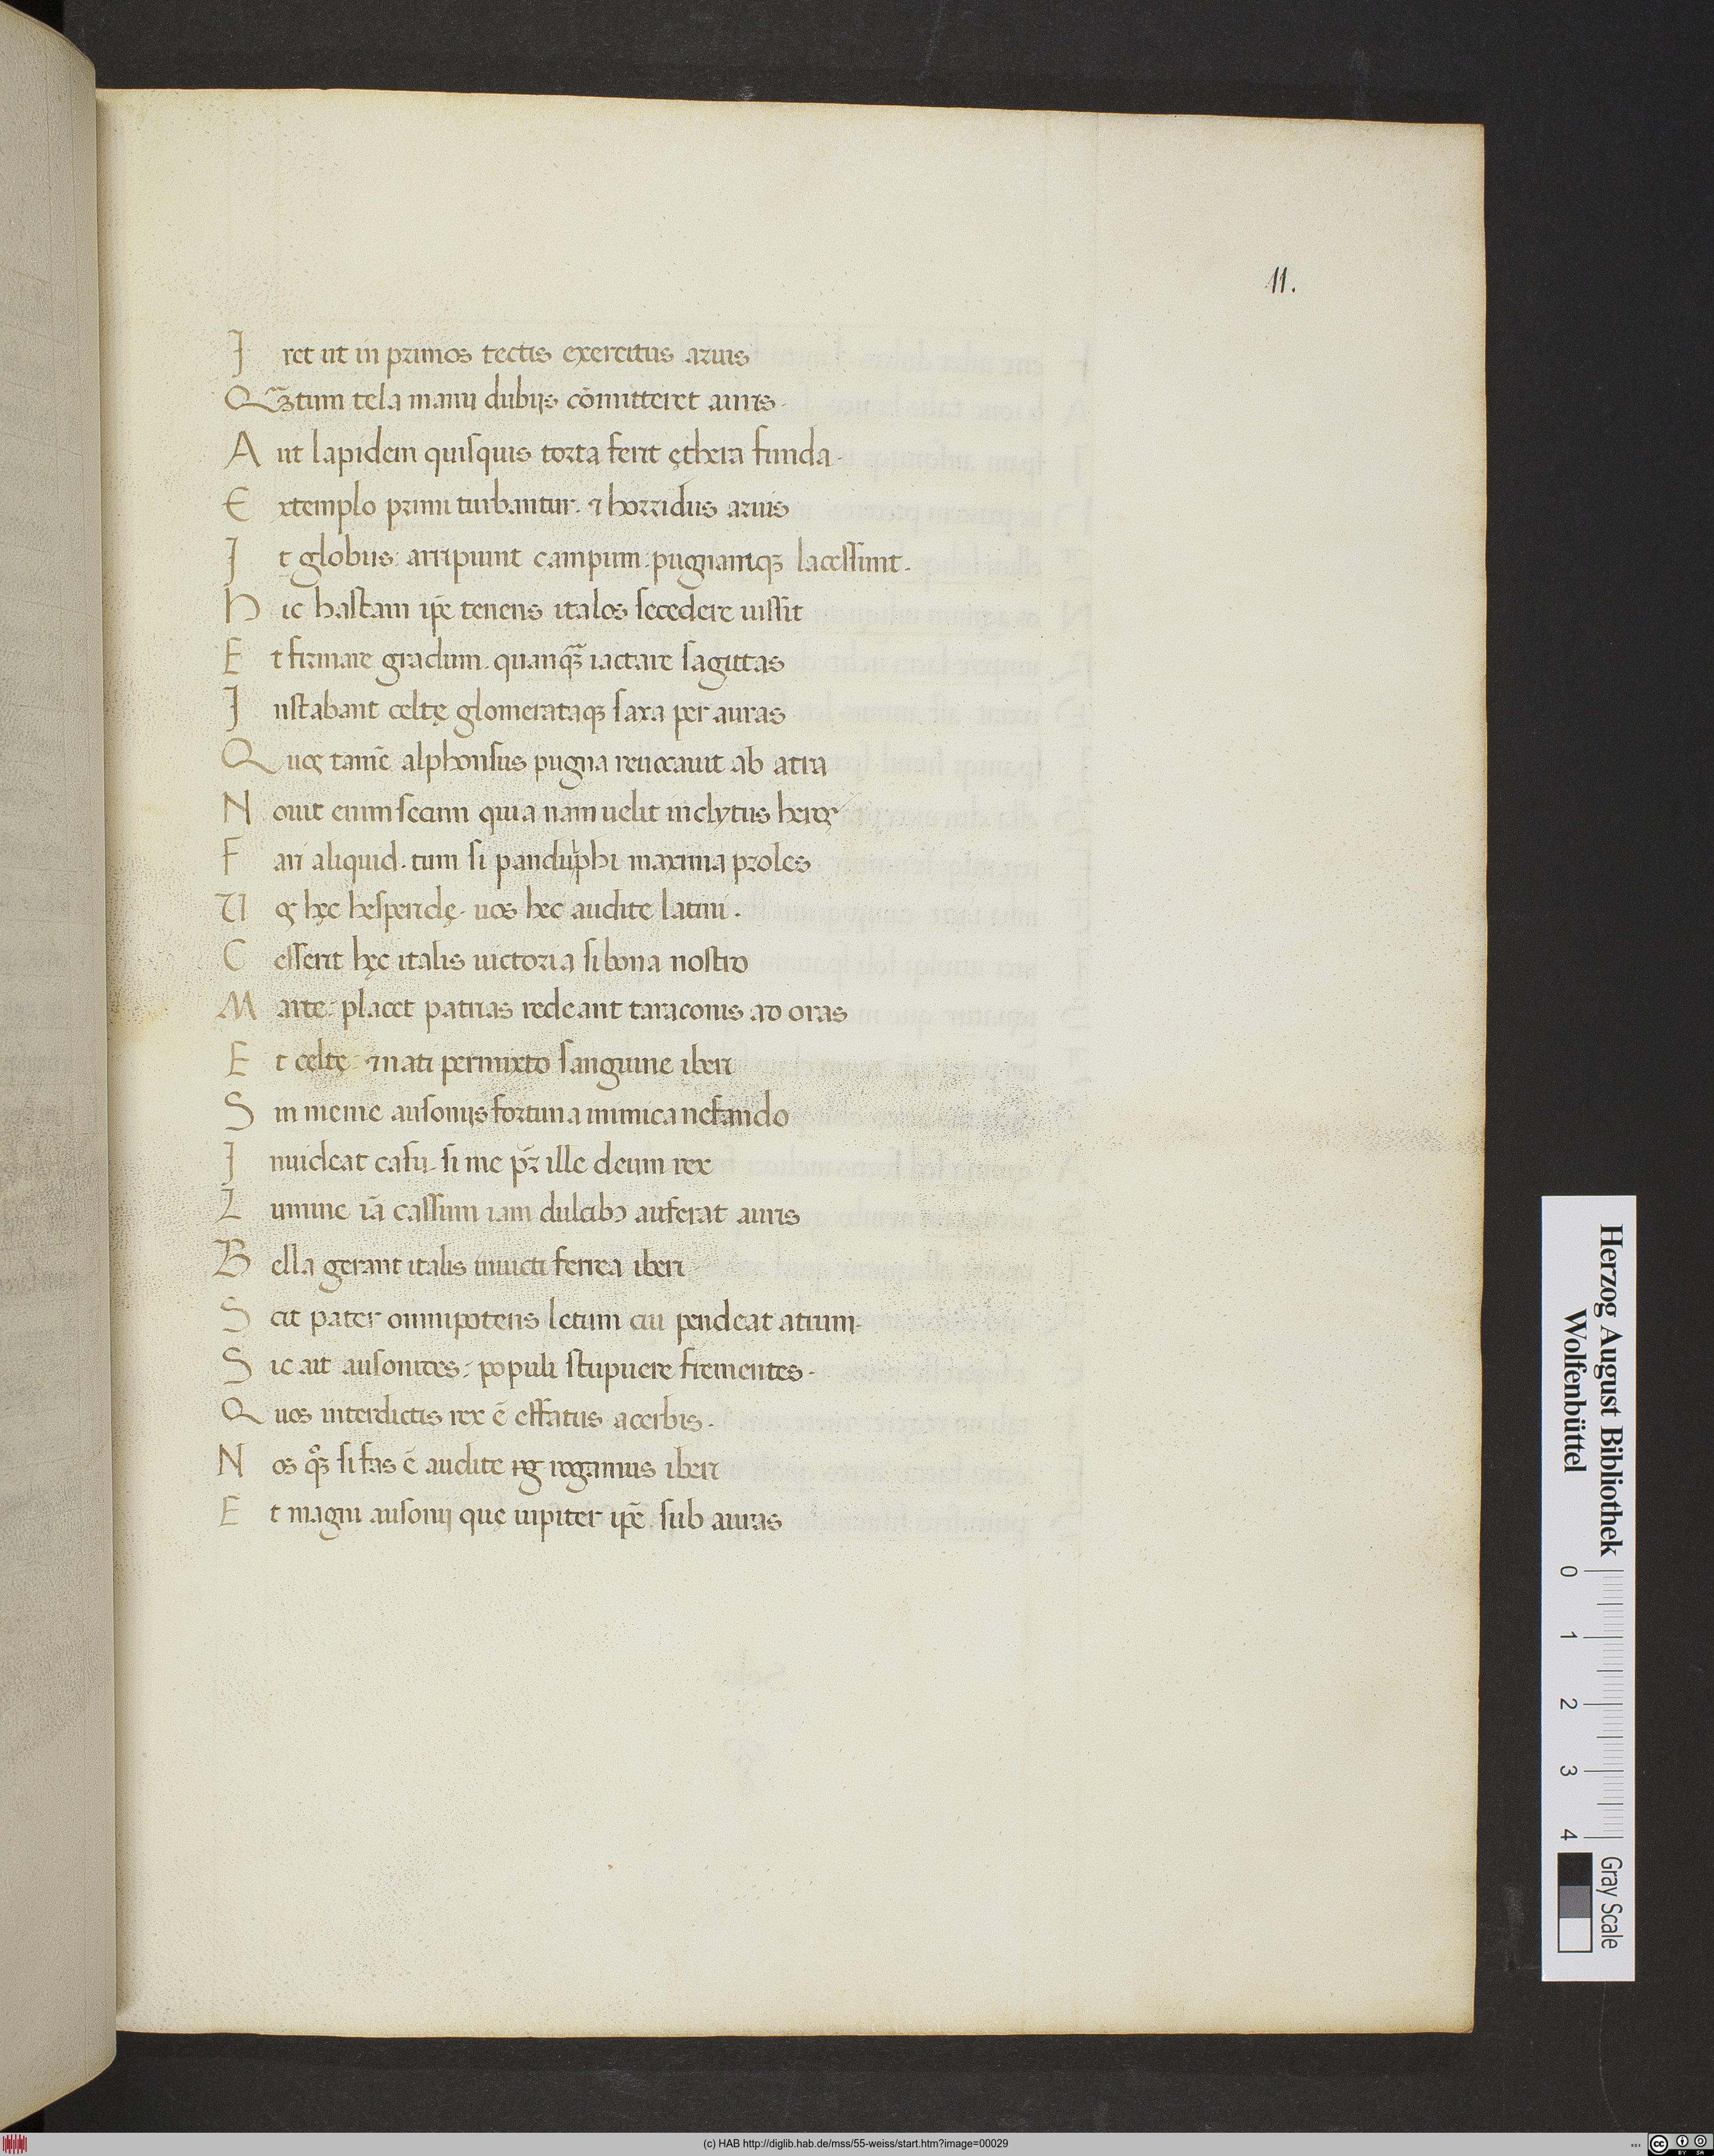 11.
Iret ut in primos tectis exercitus armis
Qꝫ̃tum tela manu dubijs cōmitteret auris.
Aut lapidem quiſquis torta ferit ęthera funda.
Extemplo primi turbantur. ⁊ horridus armis
It globus: arripiunt campum. pugnamqꝫ laceſſunt.
Hic haſtam ip̄e tenens italos ſecedere iuſſit
Et firmare gradum. quanqꝫ̃ iactare ſagittas
Inſtabant celtę glomerataqꝫ ſaxa per auras
Quos tamē alphonſus pugna reuocauit ab atra
Nouit enim ſecum quia nam uelit inclytus heros
Fari aliquid. tum ſi panduphi maxima proles
Uos hęc heſperidę. uos hec audite latini.
Ceſſerit hęc italis uictoria ſi bona noſtro
Marte: placet patrias redeant taraconis ad oras
Et cęltę ⁊ nati permixto ſanguine iberi
Sin meme auſonijs fortuna inimica nefando
Inuideat caſu. ſi me pr̄ ille deum rex
Lumine iā caſſum iam dulcibꝰ auferat auris
Bella gerant italis inuicti ferrea iberi
Scit pater omnipotens letum cui pendeat atrum.
Sic ait auſonites: populi ſtupuere frementes.
Quos interdictis rex ē effatus acerbis.
Nos qꝫͦ ſi fas ē audite rogamus iberi
Et magni auſonij quę iupiter ip̄e ſub auras
Herzog August Bibliothek
Wolfenbüttel
0 1 2 3 4
Gray Scale
(c) HAB http://diglib.hab.de/mss/55-weiss/start.htm?image=00029